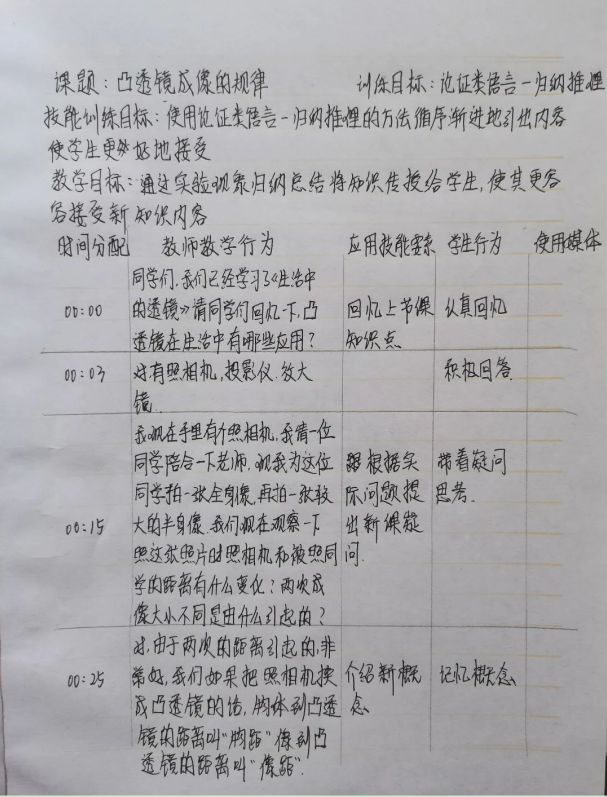 课题：凸透镜成像的规律 训练目标：论证类语言－归纳推理
技能训练目标：使用论证类语言－归纳推理的方法循序渐进地引出内容
使学生更好地接受
教学目标：通过实验现象归纳总结将知识传授给学生，使其更容
容接受新知识内容
时间分配 教师教学行为 应用技能要素 学生行为 使用媒体
同学们，我们已经学习了《生活中
00:00 的透镜》请同学们回忆一下，凸 回忆上节课 认真回忆
透镜在生活中有哪些应用？ 知识点
00:03 对有照相机，投影仪．放大 积极回答．
镜．
我现在手里有个照相机，我请一位
同学陪合一下老师，现我为这位 根据实 带着疑问
同学拍一张全身像，再拍一张较 际问题提 思考．
00:15 大的半身像．我们现在观察一下 出新课疑
照这张照片时照相机和被照同 问．
学的距离有什么变化？两次成
像大小不同是由什么引起的？
对，由于两次的距离引起的，非
00:25 常好，我们如果把照相机换 介绍新概 记忆概念
成凸透镜的话，物体到凸透 念
镜的距离叫“物距”像到凸
透镜的距离叫“像距”．